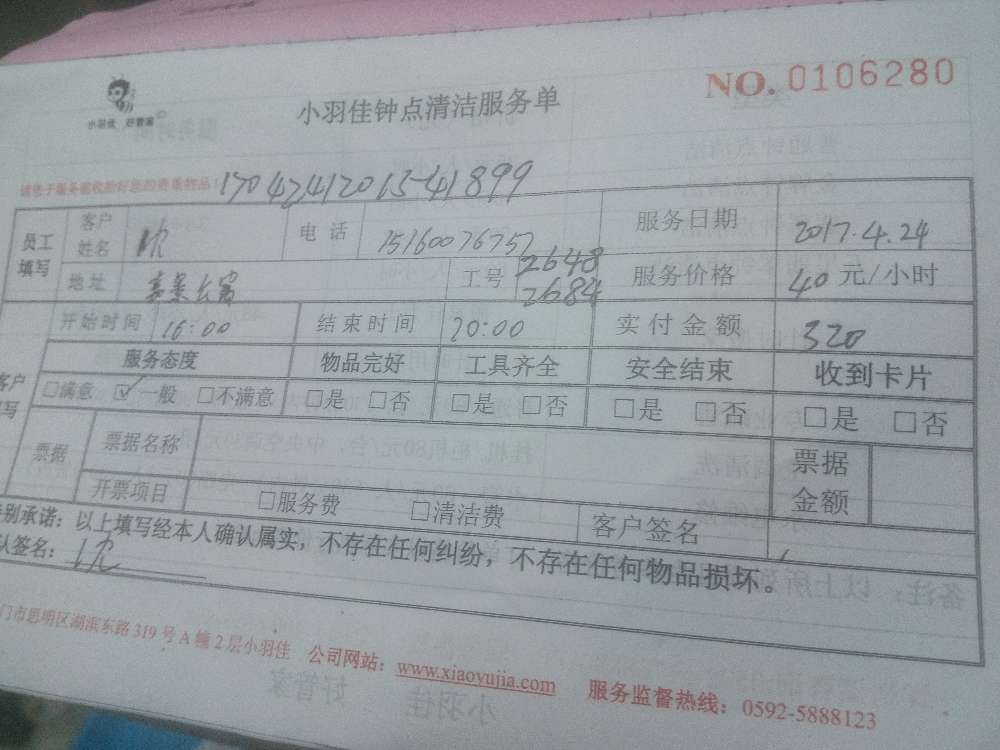 小羽佳 好管家
小羽佳钟点清洁服务单
NO. 0106280
请您于服务前收拾好您的贵重物品！
1704241201541899
员工填写 客户姓名 电话 15160076757 服务日期 2017.4.24
地址 工号 2648 2684 服务价格 40 元/小时
开始时间 16:00 结束时间 20:00 实付金额 320
服务态度 物品完好 工具齐全 安全结束 收到卡片
□满意 ☑一般 □不满意 □是 □否 □是 □否 □是 □否 □是 □否
票据 票据名称 票据金额
开票项目 □服务费 □清洁费 客户签名
别承诺：以上填写经本人确认属实，不存在任何纠纷，不存在任何物品损坏。
认签名：
门市思明区湖滨东路 319 号 A 幢 2 层小羽佳 公司网站：www.xiaoyujia.com 服务监督热线：0592-5888123